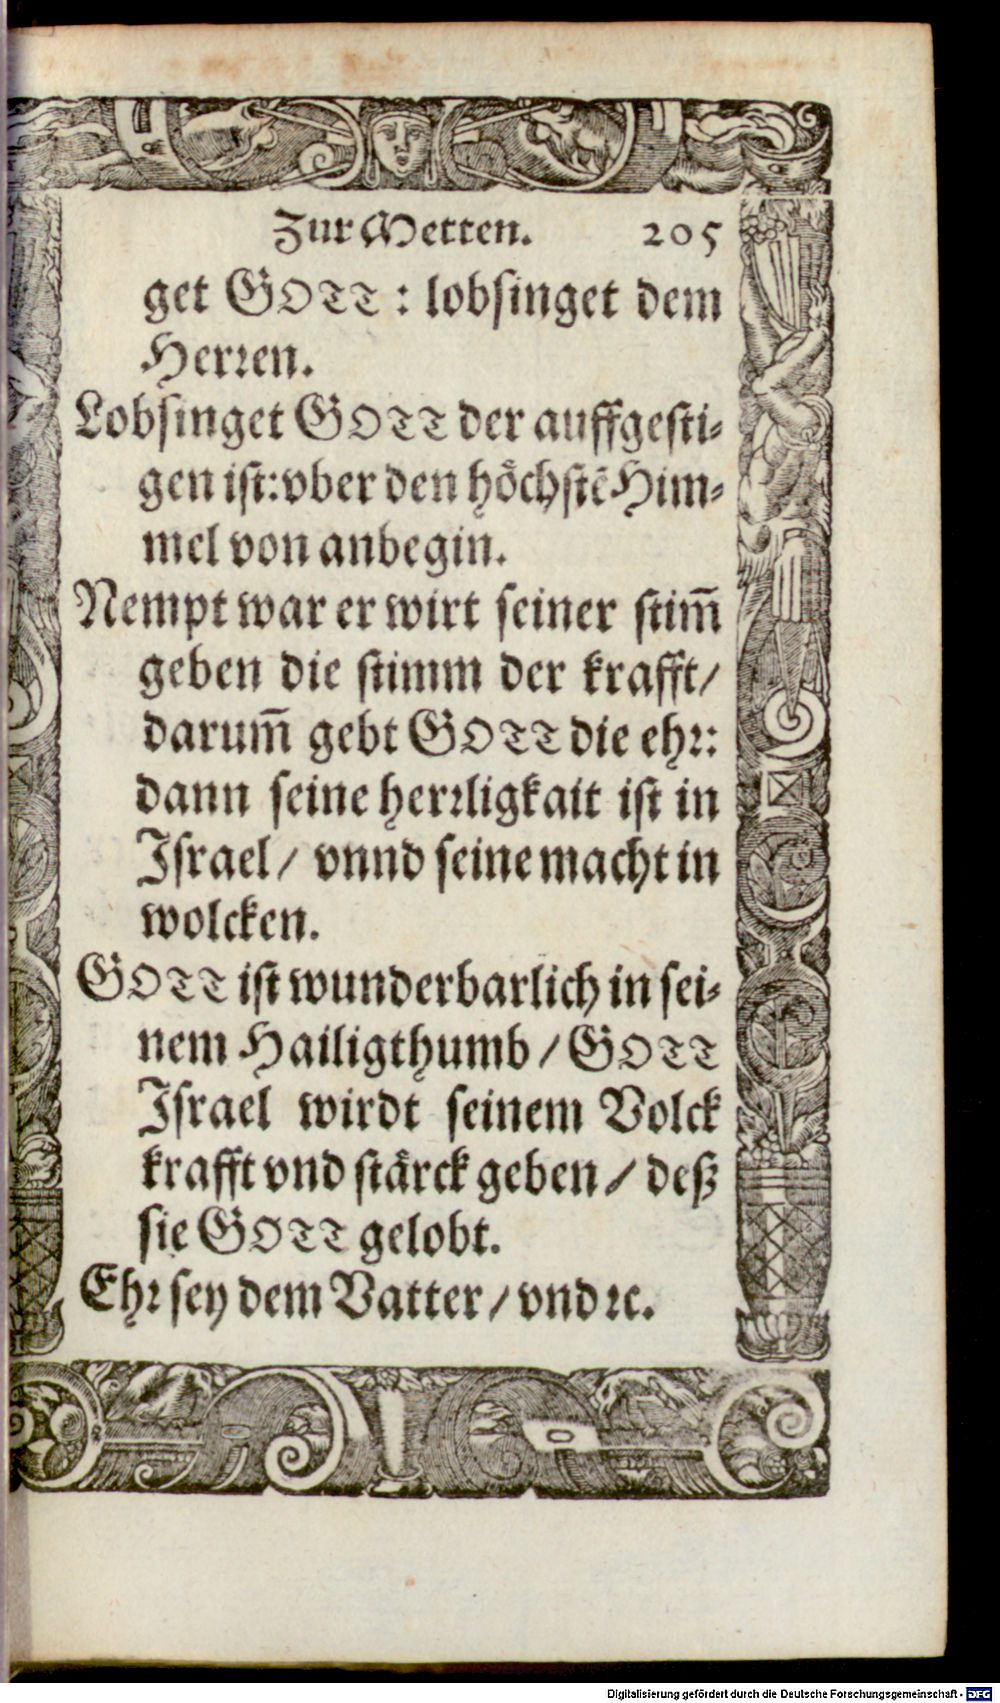 Zur Metten. 205
get GOTT : lobsinget dem
Herꝛen.
Lobsinget GOTT der auffgesti⸗
gen ist: vber den hoͤchstē Him⸗
mel von anbegin.
Nempt war er wirt seiner stim̃
geben die stimm der krafft/
darum̃ gebt GOTT die ehꝛ:
dann seine herꝛligkait ist in
Israel/ vnnd seine macht in
wolcken.
GOTT ist wunderbarlich in sei⸗
nem Hailigthumb / GOTT
Israel wirdt seinem Volck
krafft vnd staͤrck geben / deß
sie GOTT gelobt.
Ehꝛ sey dem Vatter / vnd ꝛc.
Digitalisierung gefördert durch die Deutsche Forschungsgemeinschaft - DFG